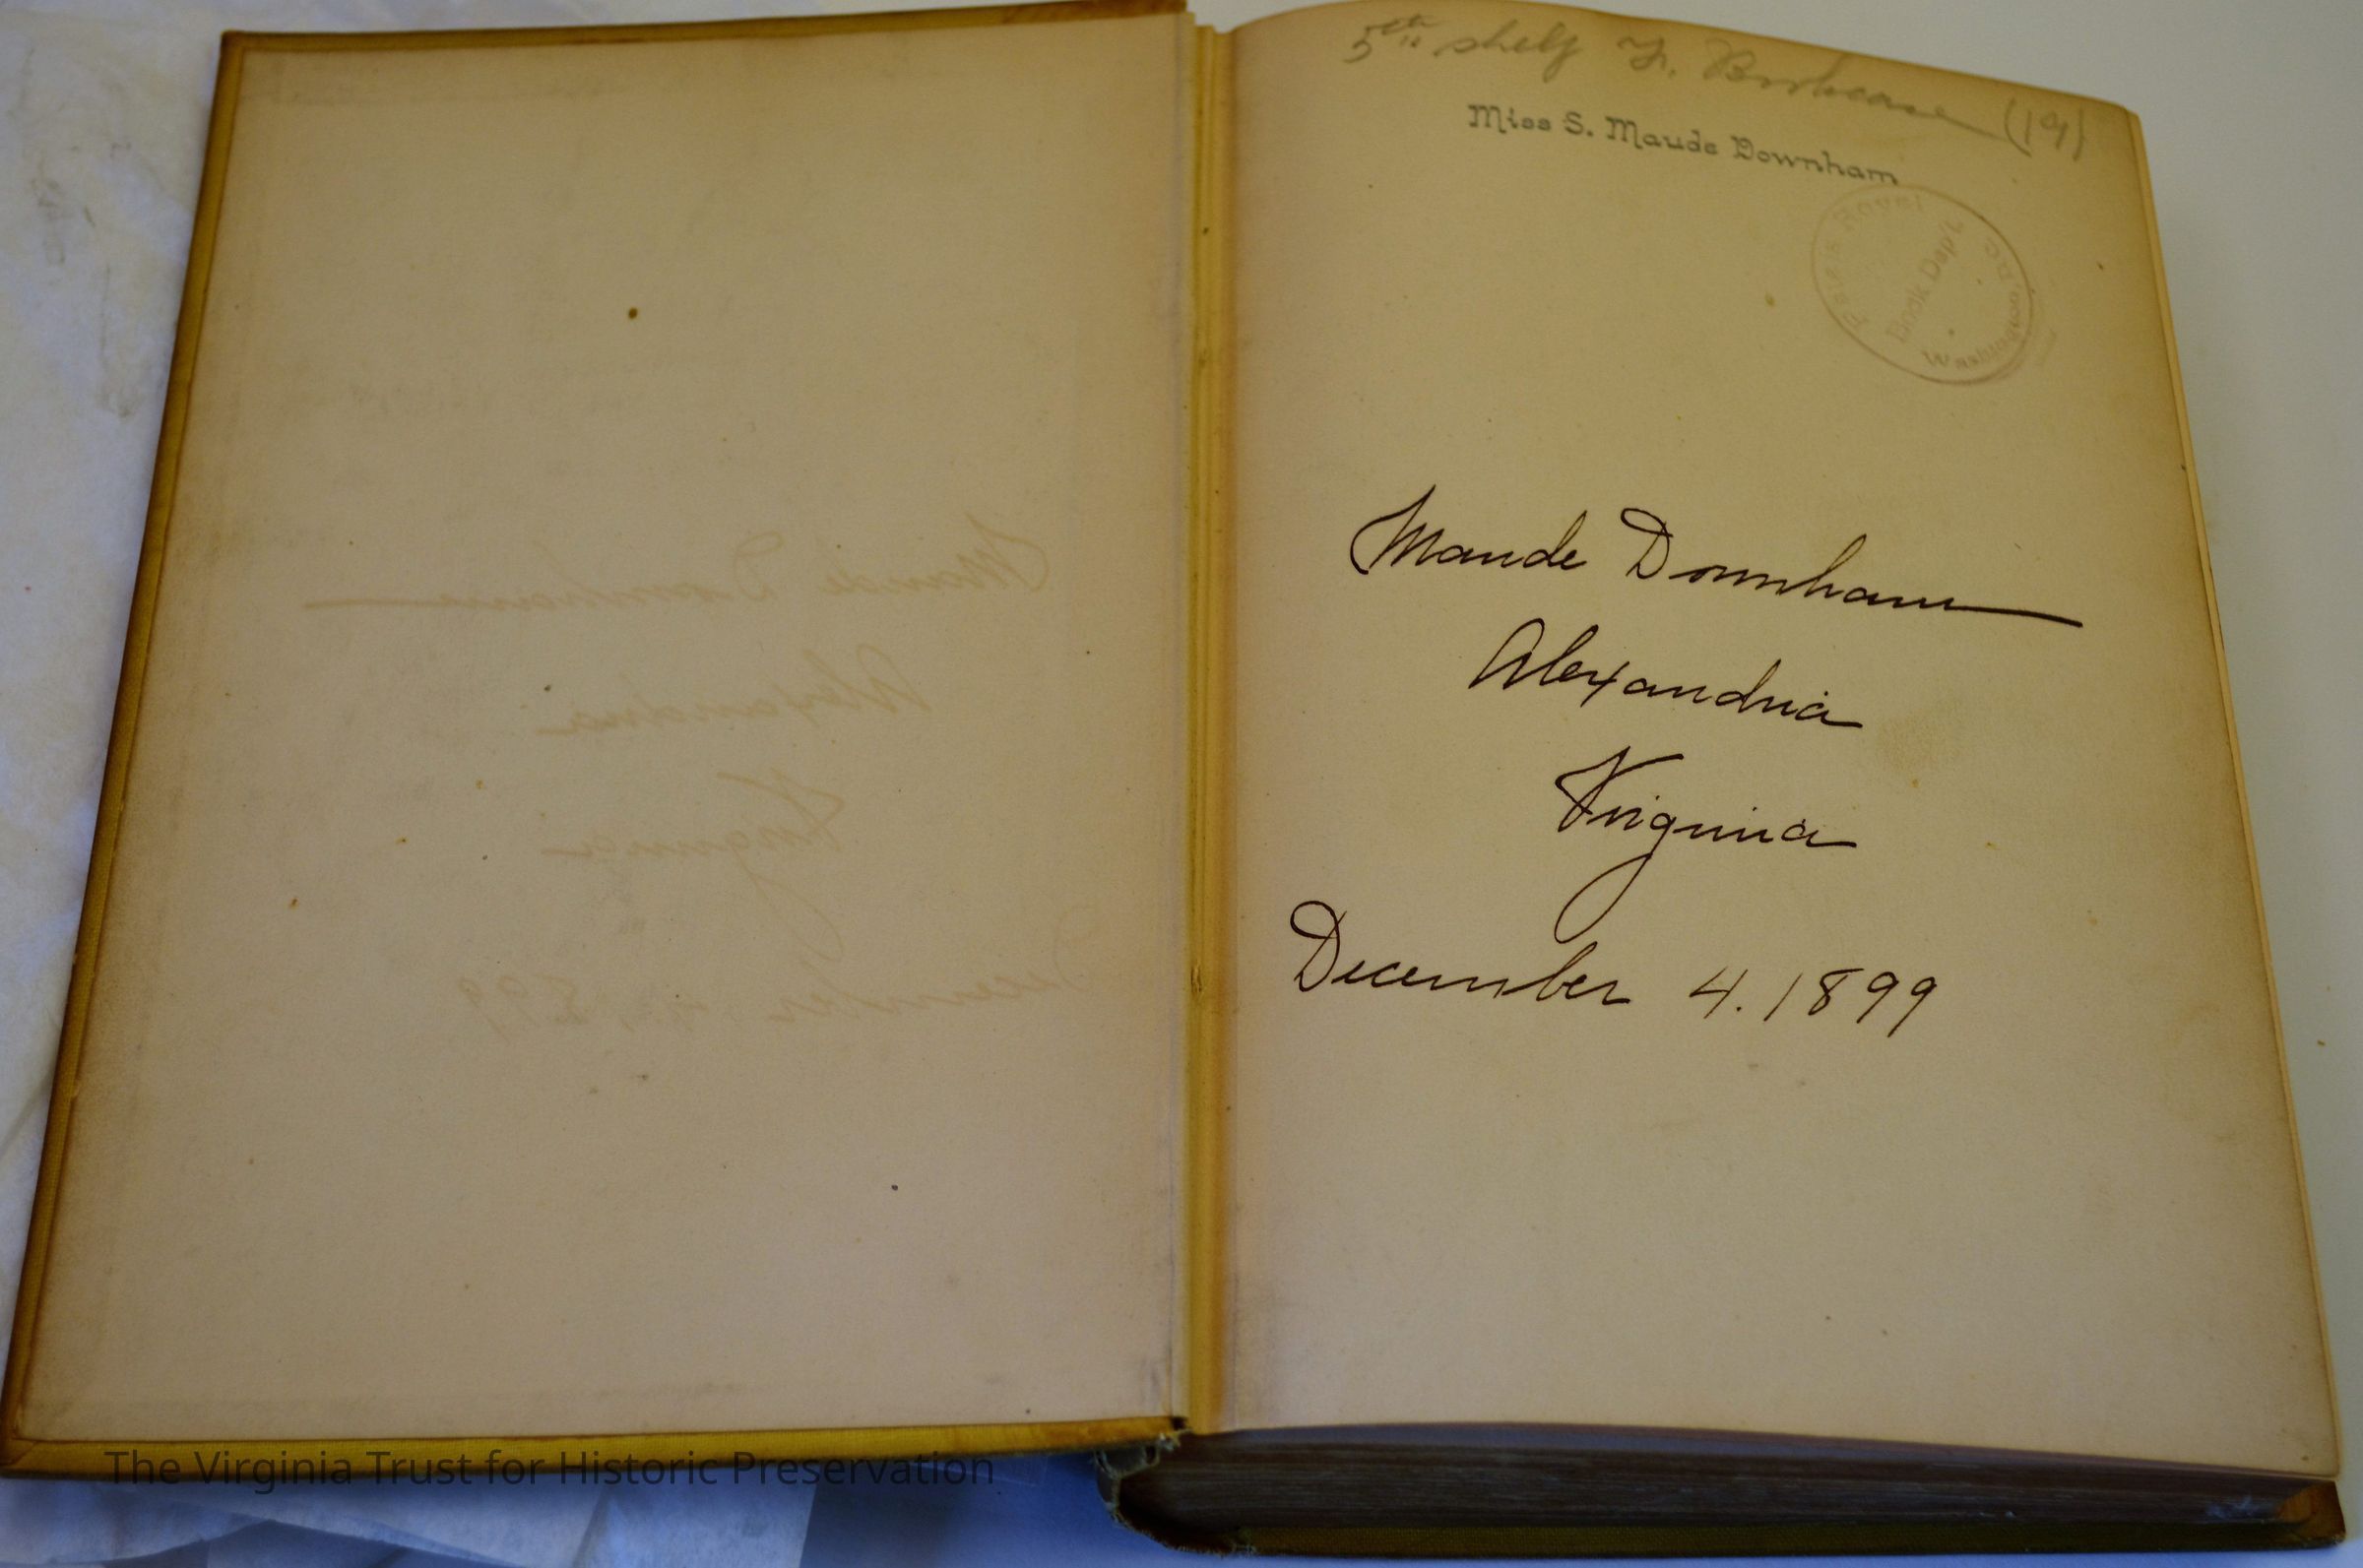 5th shelf F. Bookcase (19)
Miss S. Maude Downham
Palais Royal
Book Dep't.
Washington, D.C.
Maude Downham
Alexandria
Virginia
December 4. 1899
The Virginia Trust for Historic Preservation